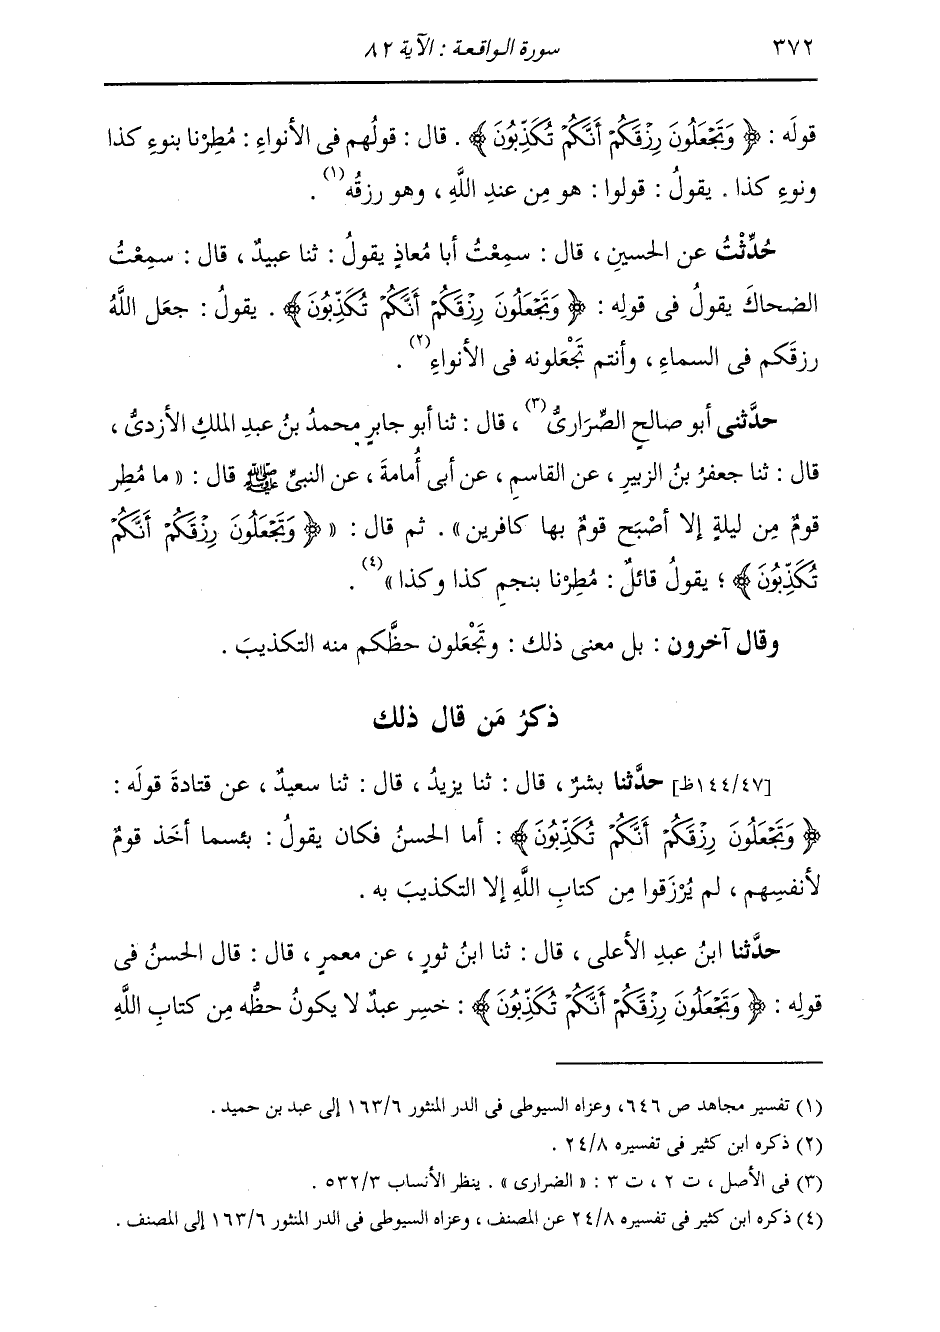 ٣٧٢ سورة الواقعة : الآية ٨٢
قولَه : ﴿ وَتَجْعَلُونَ رِزْقَكُمْ أَنَّكُمْ تُكَذِّبُونَ ﴾ . قال : قولُهم فى الأنواءِ : مُطِرْنا بنوءِ كذا
ونوءِ كذا . يقولُ : قولوا : هو مِن عندِ اللَّهِ ، وهو رزقُه(١) .
حُدِّثْتُ عن الحسينِ ، قال : سمِعْتُ أبا مُعاذٍ يقولُ : ثنا عبيدٌ ، قال : سمِعْتُ
الضحاكَ يقولُ فى قولِه : ﴿ وَتَجْعَلُونَ رِزْقَكُمْ أَنَّكُمْ تُكَذِّبُونَ ﴾ . يقولُ : جعَل اللَّهُ
رزقَكم فى السماءِ ، وأنتم تَجْعَلونه فى الأنواءِ(٢) .
حدَّثنى أبو صالحٍ الصِّرَارىُّ(٣) ، قال : ثنا أبو جابرٍ محمدُ بنُ عبدِ الملكِ الأزدىُّ ،
قال : ثنا جعفرُ بنُ الزبيرِ ، عن القاسمِ ، عن أبى أُمامةَ ، عن النبىِّ ﷺ قال : « ما مُطِر
قومٌ مِن ليلةٍ إلا أصْبَح قومٌ بها كافرين» . ثم قال : « ﴿ وَتَجْعَلُونَ رِزْقَكُمْ أَنَّكُمْ
تُكَذِّبُونَ ﴾ ؛ يقولُ قائلٌ : مُطِرْنا بنجمِ كذا وكذا »(٤) .
وقال آخرون : بل معنى ذلك : وتَجْعَلون حظَّكم منه التكذيبَ .
ذكرُ مَن قال ذلك
[١٤٤/٤٧ظ] حدَّثنا بشرٌ ، قال : ثنا يزيدُ ، قال : ثنا سعيدٌ ، عن قتادةَ قولَه :
﴿ وَتَجْعَلُونَ رِزْقَكُمْ أَنَّكُمْ تُكَذِّبُونَ ﴾ : أما الحسنُ فكان يقولُ : بئسما أخَذ قومٌ
لأنفسِهم ، لم يُرْزَقوا مِن كتابِ اللَّهِ إلا التكذيبَ به .
حدَّثنا ابنُ عبدِ الأعلى ، قال : ثنا ابنُ ثورٍ ، عن معمرٍ ، قال : قال الحسنُ فى
قولِه : ﴿ وَتَجْعَلُونَ رِزْقَكُمْ أَنَّكُمْ تُكَذِّبُونَ ﴾ : خسِر عبدٌ لا يكونُ حظُّه مِن كتابِ اللَّهِ
(١) تفسير مجاهد ص ٦٤٦، وعزاه السيوطى فى الدر المنثور ١٦٣/٦ إلى عبد بن حميد .
(٢) ذكره ابن كثير فى تفسيره ٢٤/٨ .
(٣) فى الأصل ، ت ٢ ، ت ٣ : « الضرارى » . ينظر الأنساب ٥٣٢/٣ .
(٤) ذكره ابن كثير فى تفسيره ٢٤/٨ عن المصنف ، وعزاه السيوطى فى الدر المنثور ١٦٣/٦ إلى المصنف .